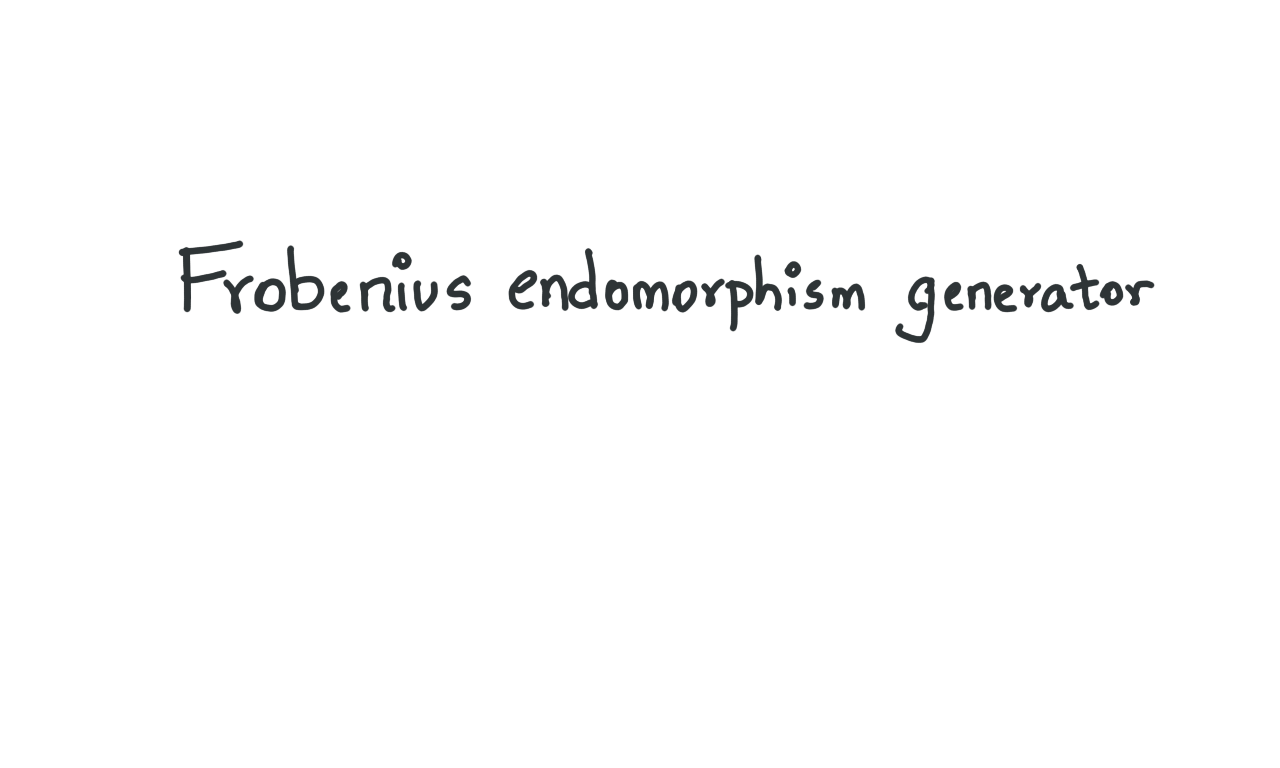 Frobenius endomorphism generator